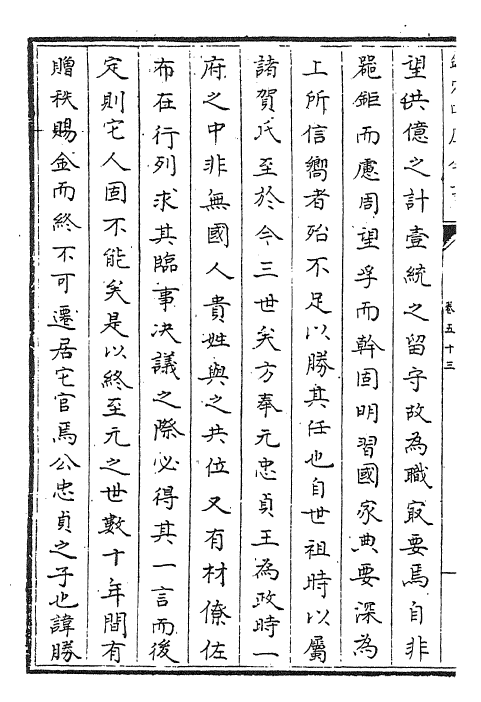 卷五十三
望供億之計壹統之留守故為職㝡要焉自非
器鉅而慮周望孚而幹固明習國家典要深為
上所信嚮者殆不足以勝其任也自世祖時以屬
諸賀氏至於今三世矣方奉元忠貞王為政時一
府之中非無國人貴姓與之共位又有材僚佐
布在行列求其臨事决議之際必得其一言而後
定則它人固不能矣是以終至元之世數十年間有
贈秩賜金而終不可遷居它官焉公忠貞之子也諱勝